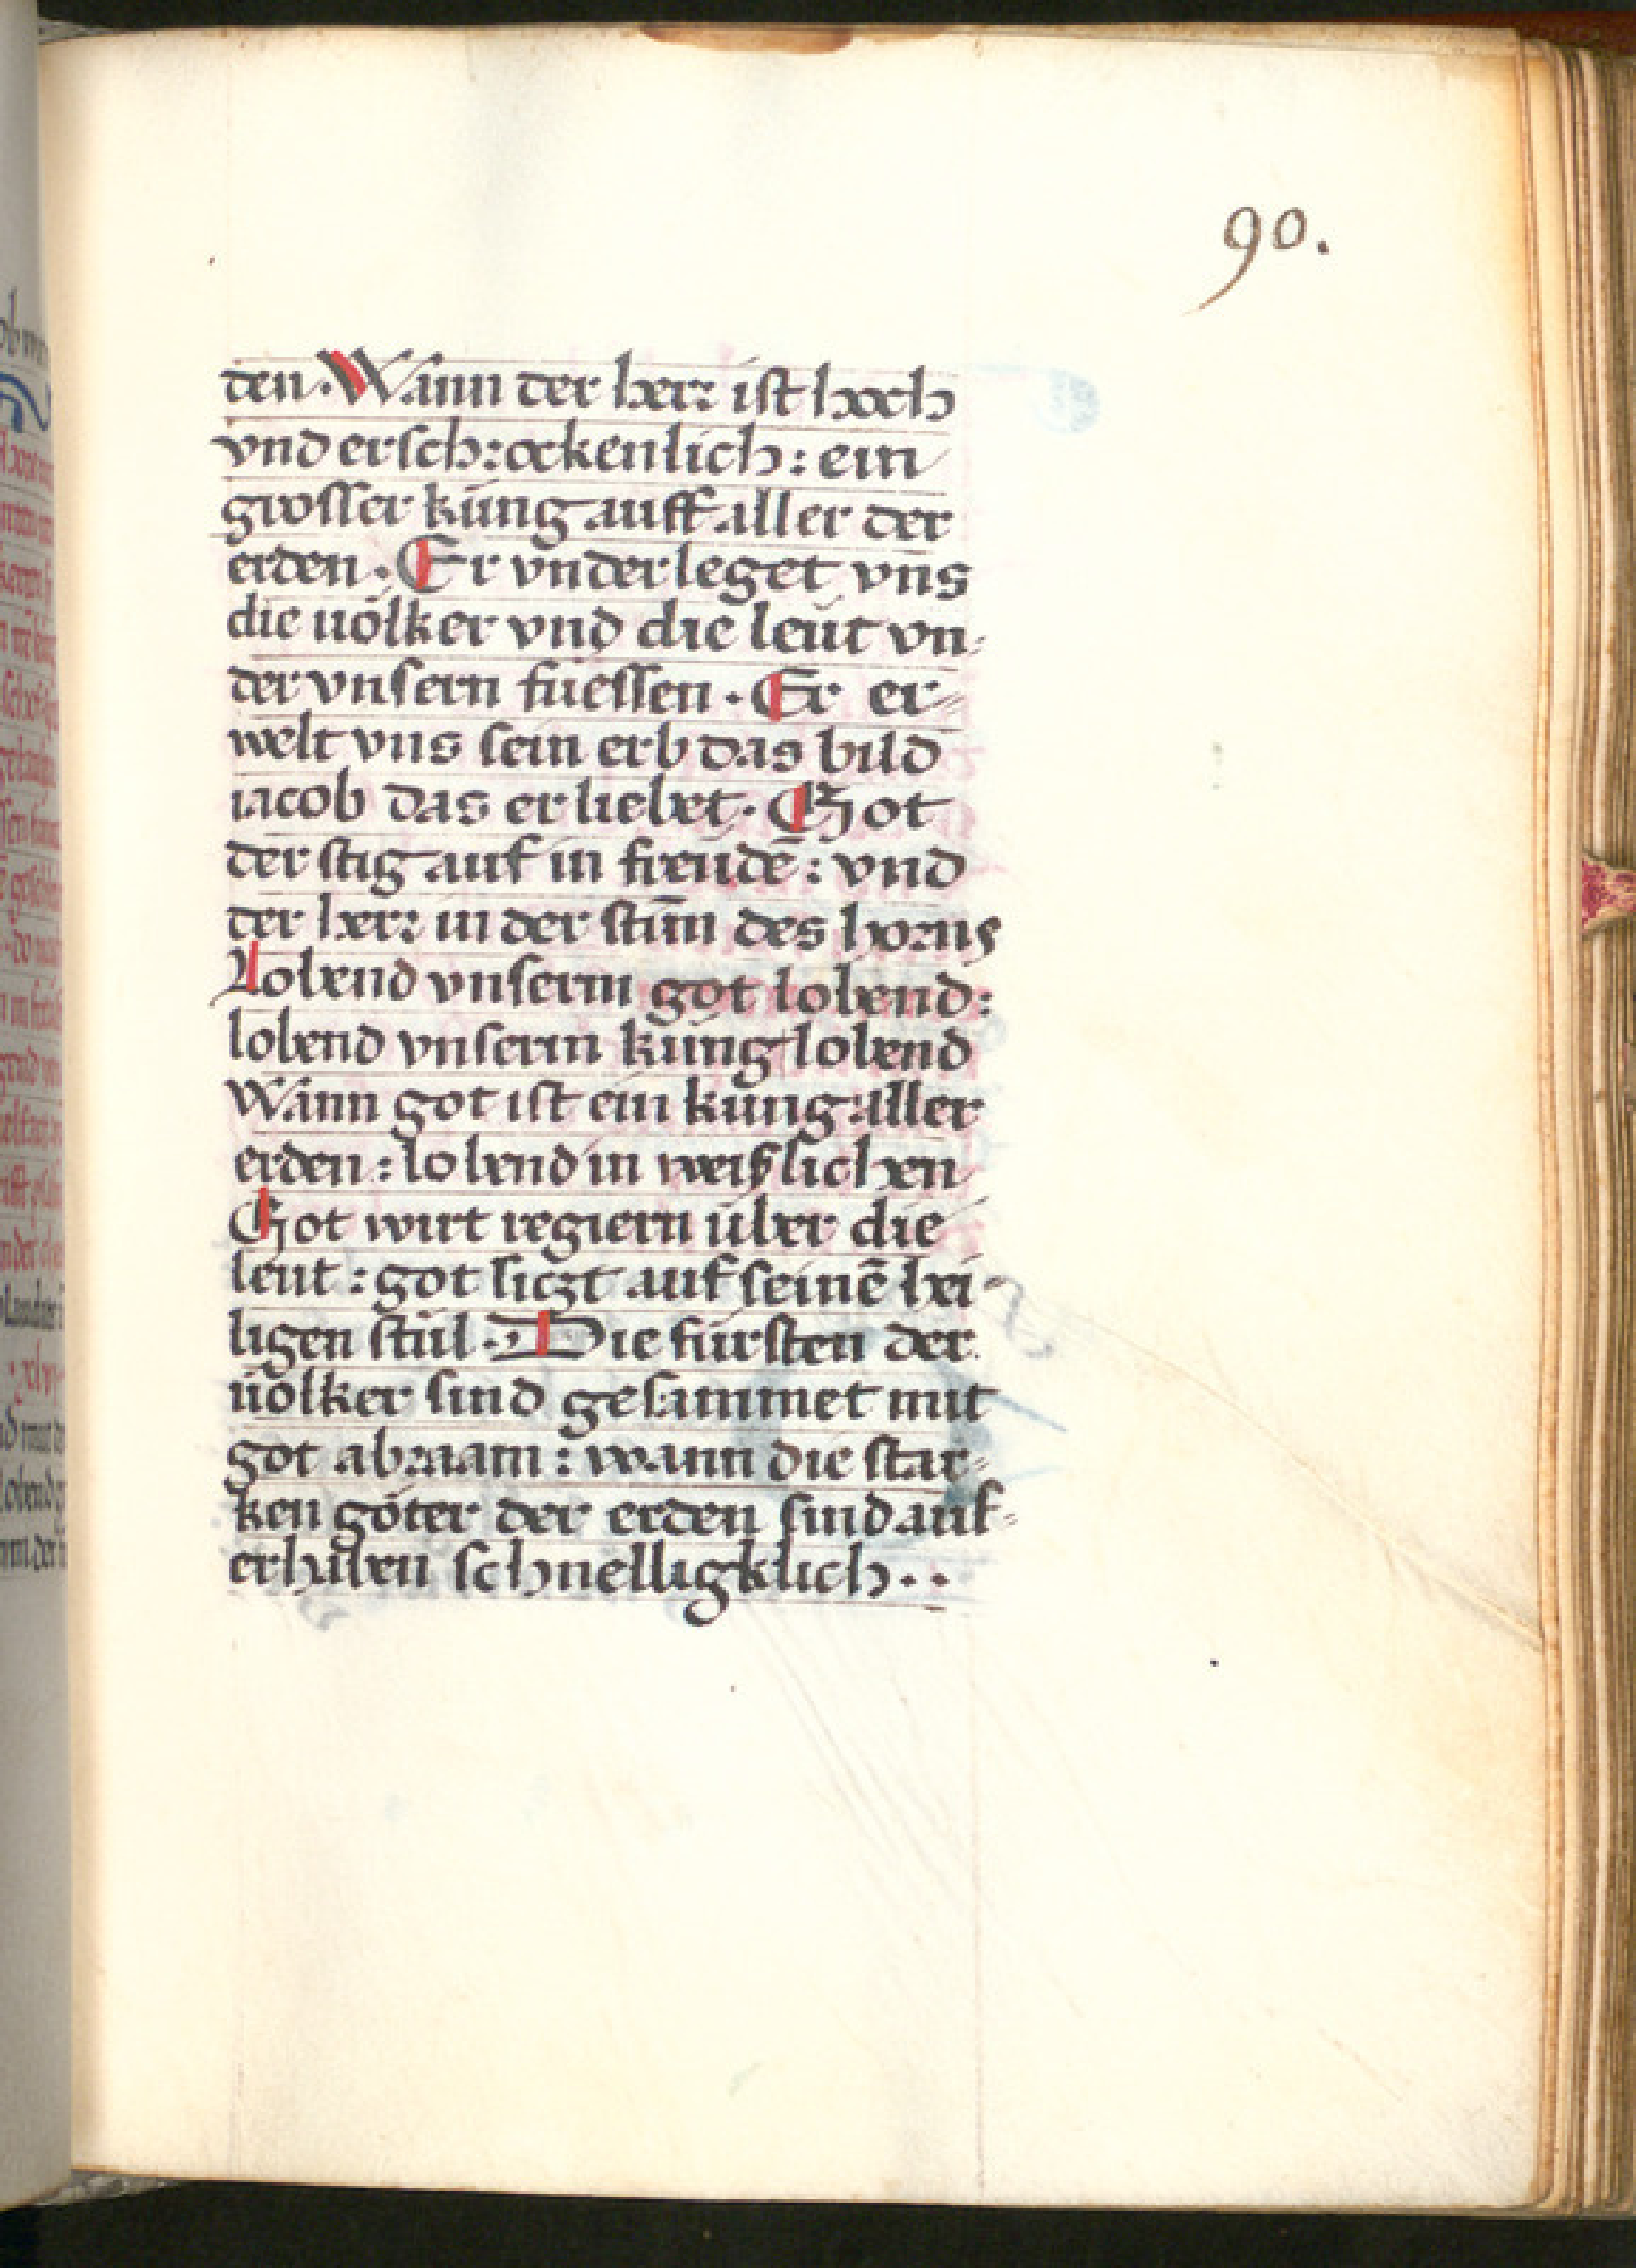 90.
den. Wann der herr ist hoch
vnd erschrockenlich: ein
grosser küng auff aller der
erden. Er vnderleget vns
die uölker vnd die leüt vn-
der vnsern füessen. Er er-
welt vns sein erb das bild
iacob das er liebet. Got
der stig auf in freüdē: vnd
der herr in der stim̄ des horns
Lobend vnserm got lobend:
lobend vnserm küng lobend
Wann got ist ein küng aller
erden: lobend in weißlichen
Got wirt regiern über die
leüt: got siczt auf seinē hei-
ligen stůl. Die fürsten der
uölker sind gesammet mit
got abraam: wann die star-
ken göter der erden sind auf-
erhaben schnelligklich..